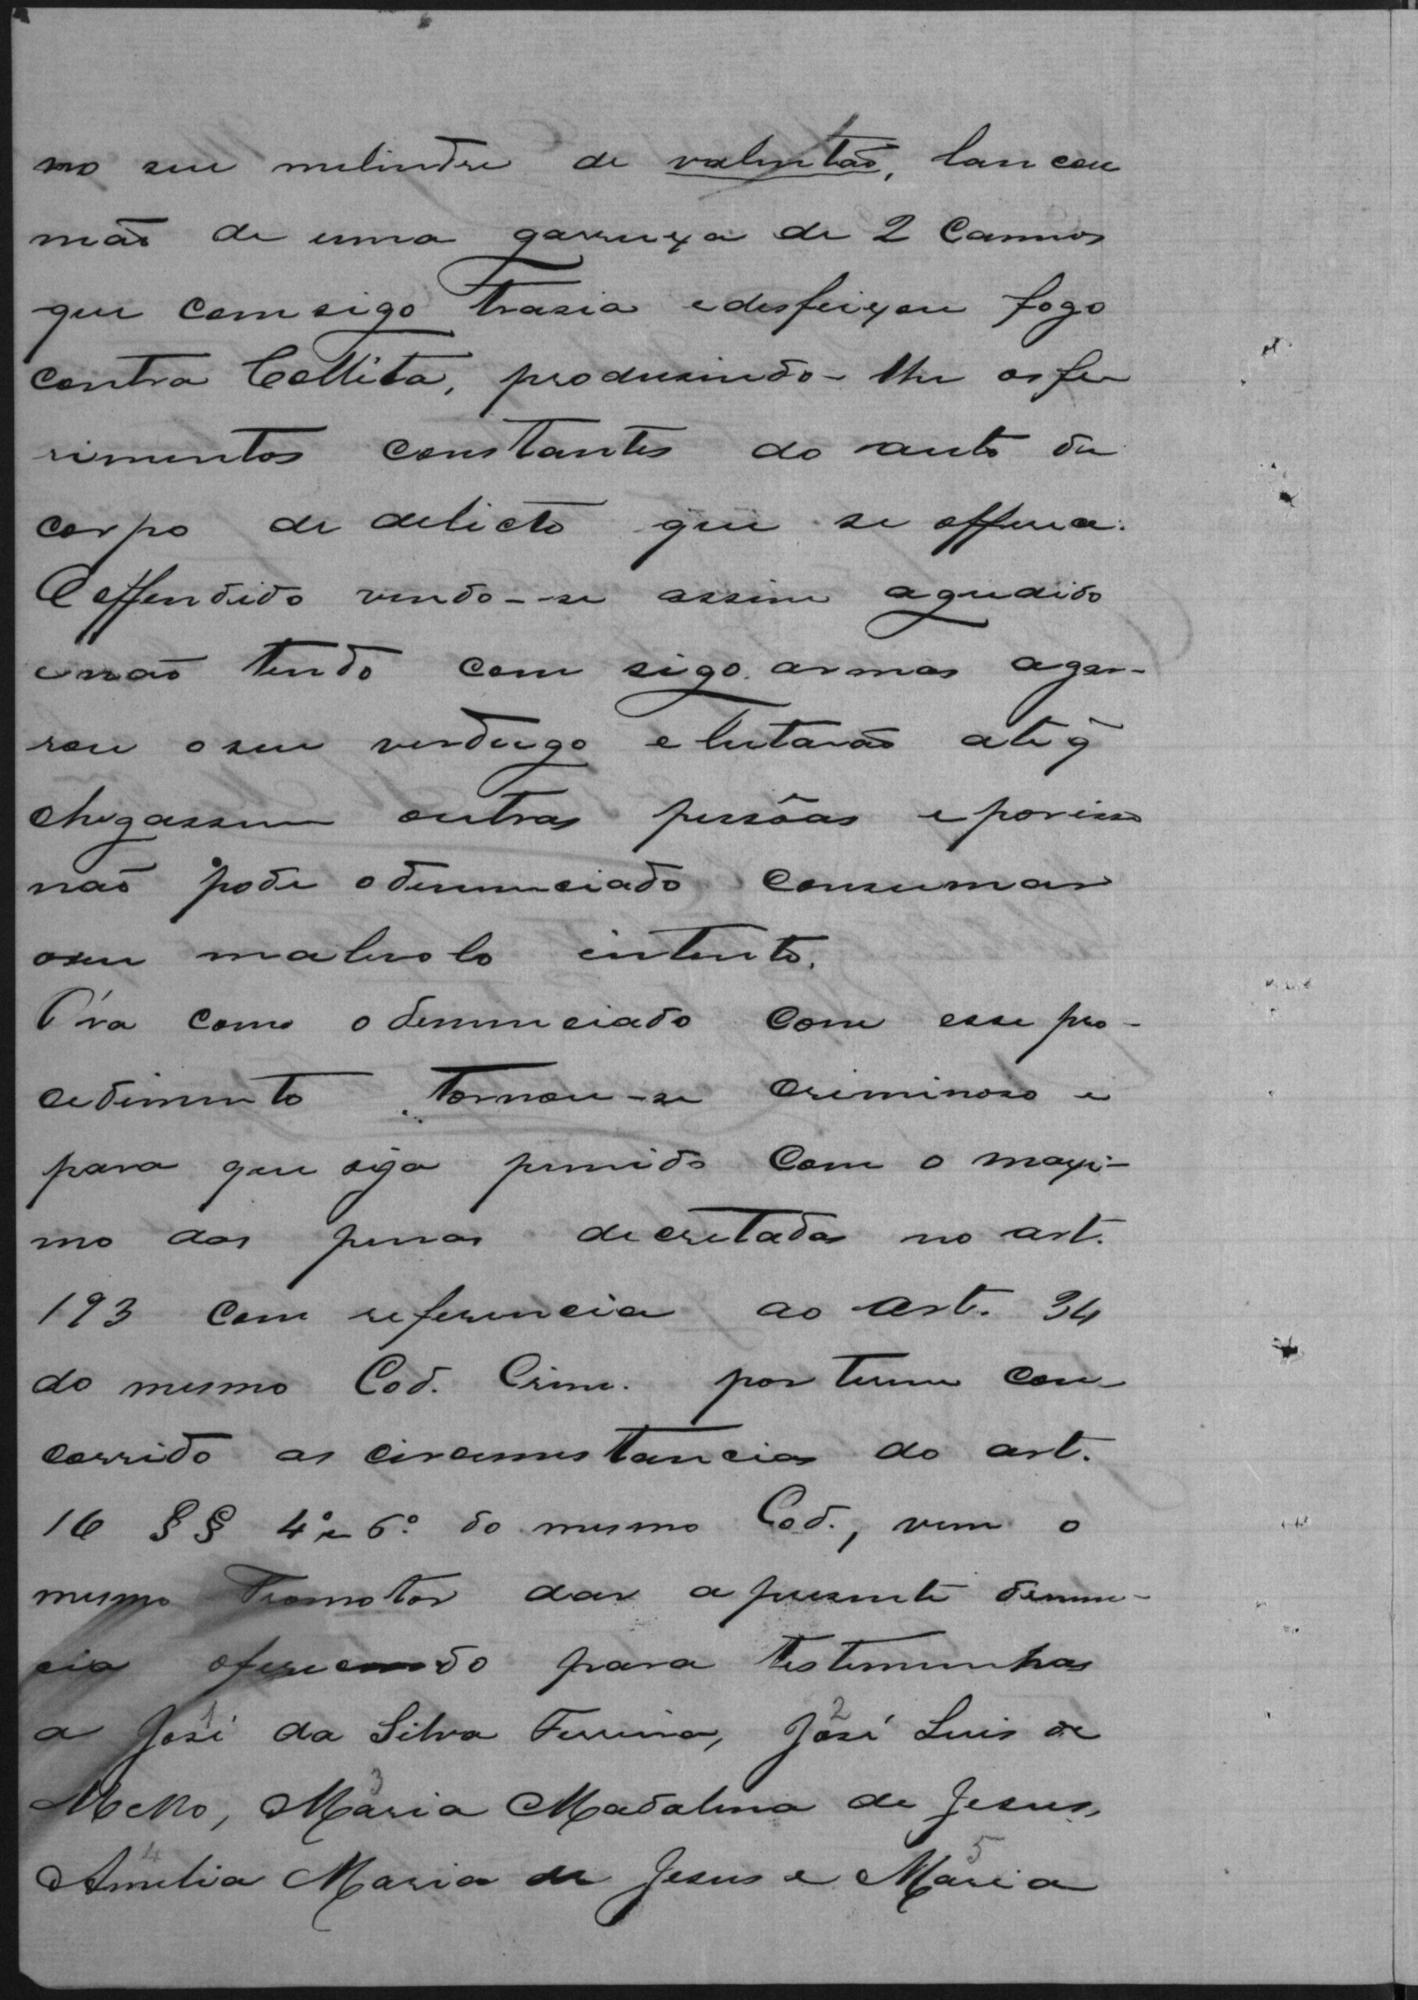 no seu melindre de valentão, lançou
mão de uma garruxa de 2 Cannos
que comsigo trasia e desfeixou fogo
contra Collita, produsindo-lhe os fe
rimentos constantes do auto de
corpo de delicto que se offerece.
O offendido vendo-se assim agredido
e não tendo com sigo armas agar-
rou o seu verdugo e lutarão até q̃
chegassem outras pessôas e por isso
não pode o denunciado consumar
o seu malevolo intento.
Óra como o denunciado com esse pro-
cedimento tornou-se criminoso e
para que seja punido com o maxi-
mo das penas decretadas no art.
193 com referencia ao art. 34
do mesmo Cod. Crim. por terem con-
corrido as circumstancias do art.
16 §§ 4º e 6º do mesmo Cod., vem o
mesmo Promotor dar a presente denun-
cia oferecendo para testemunhas
a José da Silva Ferreira, José Luis de
1 2
Mello, Maria Madalena de Jesus,
3
Amelia Maria de Jesus e Maria
4 5